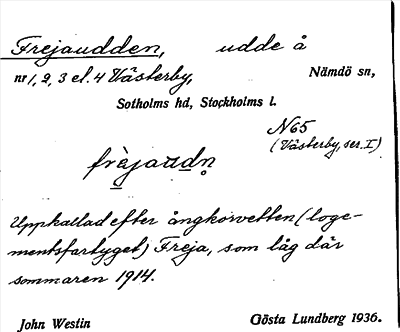 Frejaudden, udde å
nr 1, 2, 3 el. 4 Västerby, Nämdö sn,
Sotholms hd, Stockholms l.
N65
(Västerby, ser. I)
frèjaudn̥
Uppkallad efter ångkorvetten (loge-
mentsfartyget) Freja, som låg där
sommaren 1914.
John Westin Gösta Lundberg 1936.